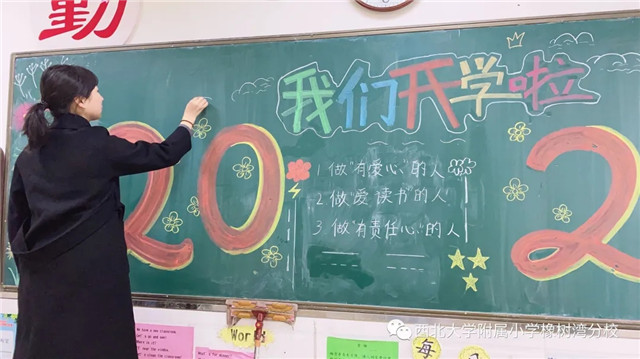 勤
我们开学啦
202
1 做"有爱心"的人
2 做"爱读书"的人
3 做"有责任心"的人
Wor
每
西北大学附属小学橡树湾分校